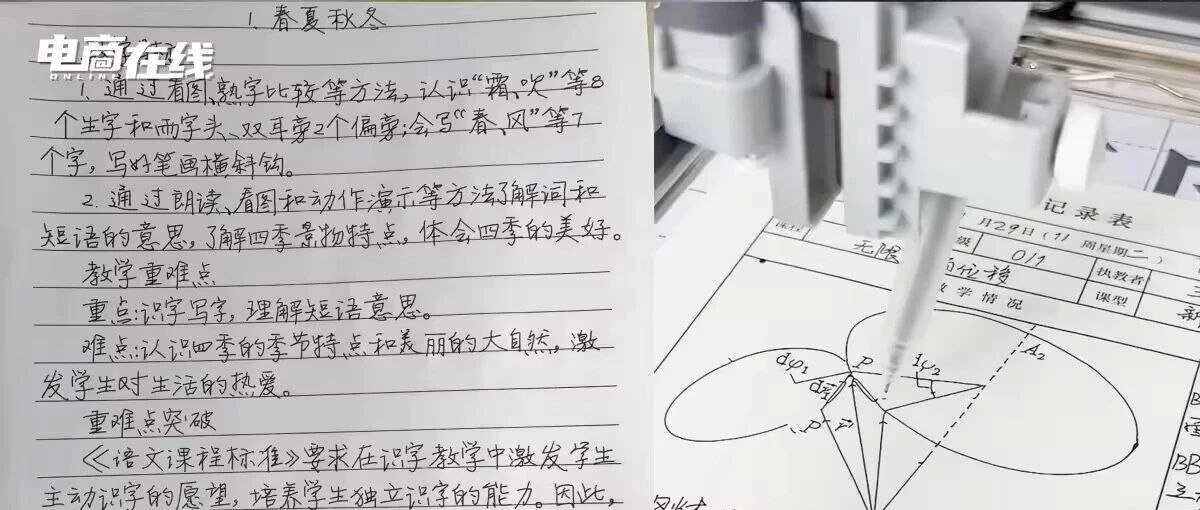 1.春夏秋冬
电商在线
ONLINE
1.通过看图、熟字比较等方法,认识“霜、吹”等8
个生字和雨字头、双耳旁2个偏旁;会写“春、风”等7
个字,写好笔画横斜钩。
2.通过朗读、看图和动作演示等方法了解词和
短语的意思,了解四季景物特点,体会四季的美好。
教学重难点
重点:识字写字,理解短语意思。
难点:认识四季的季节特点和美丽的大自然,激
发学生对生活的热爱。
重难点突破
《语文课程标准》要求在识字教学中激发学生
主动识字的愿望,培养学生独立识字的能力。因此,
记录表
月29日(11周星期二)
无限 级 011 执教者
位移 课型 新
学情况
A2
dφ1 P
P'
BB